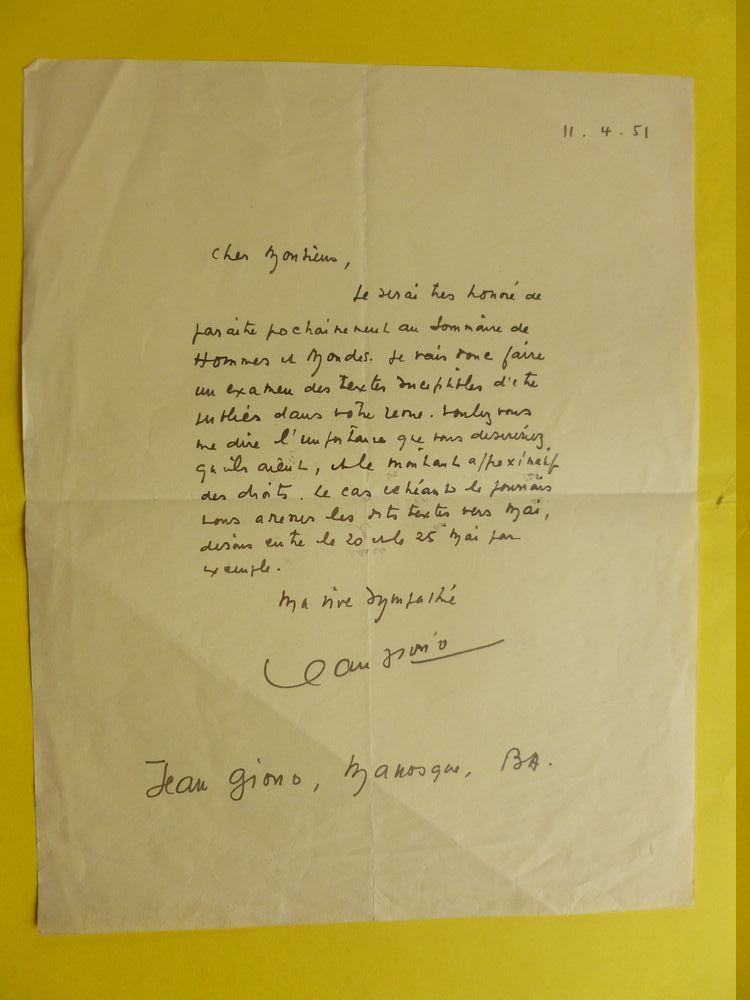 11. 4. 51
Cher Monsieur,
Je serai très honoré de
paraître prochainement au Sommaire de
Hommes et Mondes. Je vais donc faire
un examen des textes susceptibles d'être
publiés dans votre revue. Voulez vous
me dire l'importance que vous desireriez
qu'ils aient, et le montant approximatif
des droits. Le cas échéant je pourrais
vous les dits textes vers Mai,
disons entre le 20 et le 25 Mai par
exemple.
Ma vive sympathie
Jean Giono
Jean Giono, Manosque, BA.